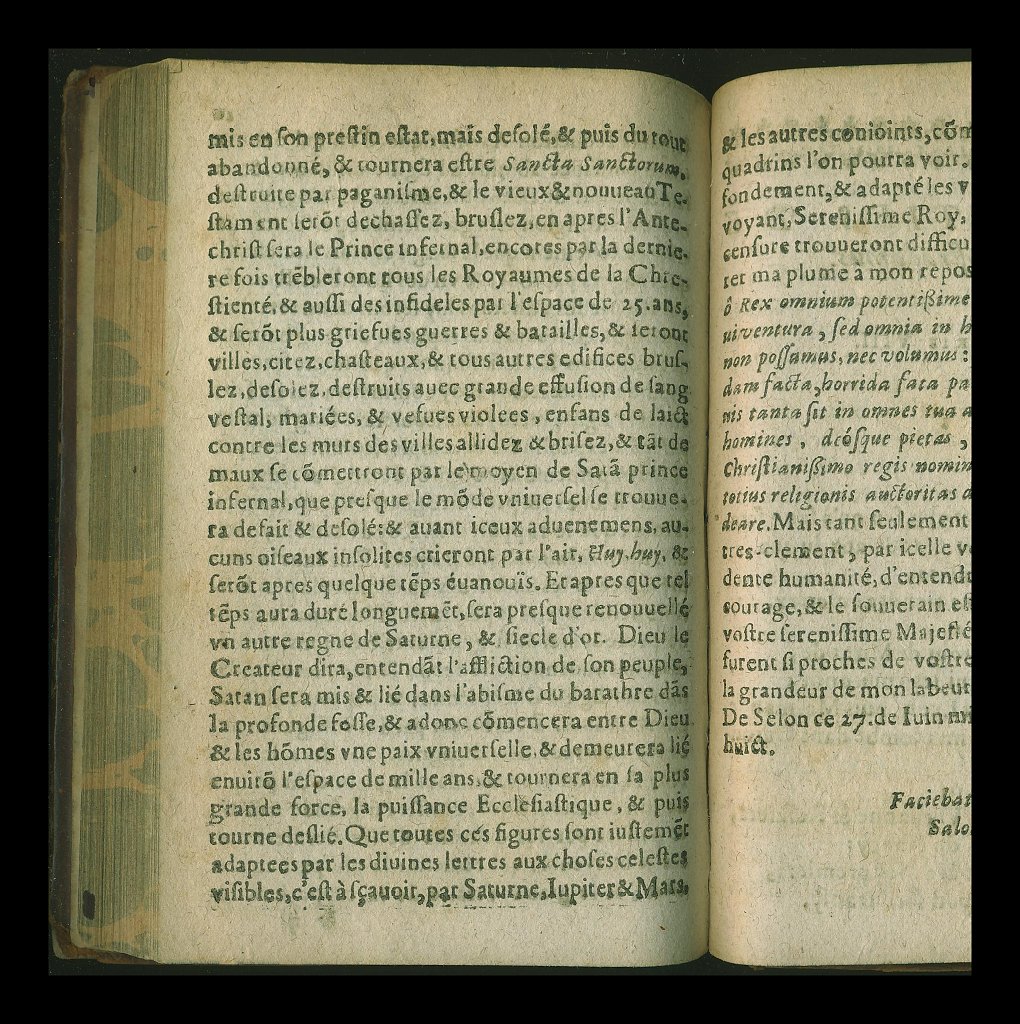 mis en ſon preſtin eſtat, mais deſolé, & puis du tout
abandonné, & tournera eſtre Sancta Sanctorum,
deſtruite par paganiſme, & le vieux & nouueau Te-
ſtam nt ſerõt dechaſſez, bruſlez, en apres l'Ante-
chriſt ſera le Prince infernal, encores par la dernie-
re fois trẽbleront tous les Royaumes de la Chre-
ſtienté, & auſſi des infideles par l'eſpace de 25. ans,
& ſerõt plus griefues guerres & batailles, & ſeront
villes, citez, chaſteaux, & tous autres edifices bruſ-
lez, deſolez, deſtruits auec grande effuſion de ſang
veſtal, mariées, & vefues violees, enfans de laict
contre les murs des villes allidez & briſez, & tãt de
maux ſe cõmettront par le moyen de Satã prince
infernal, que preſque le mõde vniuerſel ſe trouue-
ra defait & deſolé: & auant iceux aduenemens, au-
cuns oiſeaux inſolites crieront par l'air, Huy, huy, &
ſerõt apres quelque tẽps éuanouïs. Et apres que tel
tẽps aura duré longuemẽt, ſera preſque renouuellé
vn autre regne de Saturne, & ſiecle d'or. Dieu le
Createur dira, entendãt l'affliction de ſon peuple,
Satan ſera mis & lié dans l'abiſme du barathre dãs
la profonde foſſe, & adonc cõmencera entre Dieu
& les hõmes vne paix vniuerſelle, & demeurera lié
enuirõ l'eſpace de mille ans, & tournera en ſa plus
grande force, la puiſſance Eccleſiaſtique, & puis
tourne deſlié. Que toutes ces figures ſont iuſtemẽt
adaptees par les diuines lettres aux choſes celeſtes
viſibles, c'eſt à ſçauoir, par Saturne, Iupiter & Mars,
& les autres conioints, cõm
quadrins l'on pourra voir.
fondement, & adapté les v
voyant, Sereniſſime Roy,
cenſure trouueront difficu
rer ma plume à mon repos
ô Rex omnium potentißime
ui ventura, ſed omnia in h
non poſſamus, nec volumus:
dam facta, horrida fata pa
nis tanta ſit in omnes tua a
homines, deóſque pietas,
Chriſtianißimo regis nomin
totius religionis auctoritas d
deare. Mais tant ſeulement
tres-clement, par icelle v
dente humanité, d'entend
courage, & le ſouuerain eſ
voſtre ſereniſſime Majeſté
furent ſi proches de voſtre
la grandeur de mon labeur
De Selon ce 27. de Iuin mi
huict.
Faciebat
Salo